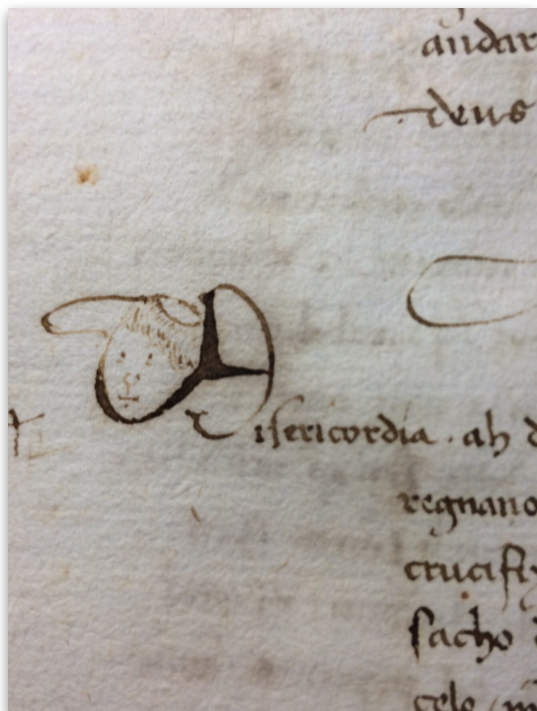 andar
deus
Misericordia . ah d
regnano
crucifi
sacho d
celo